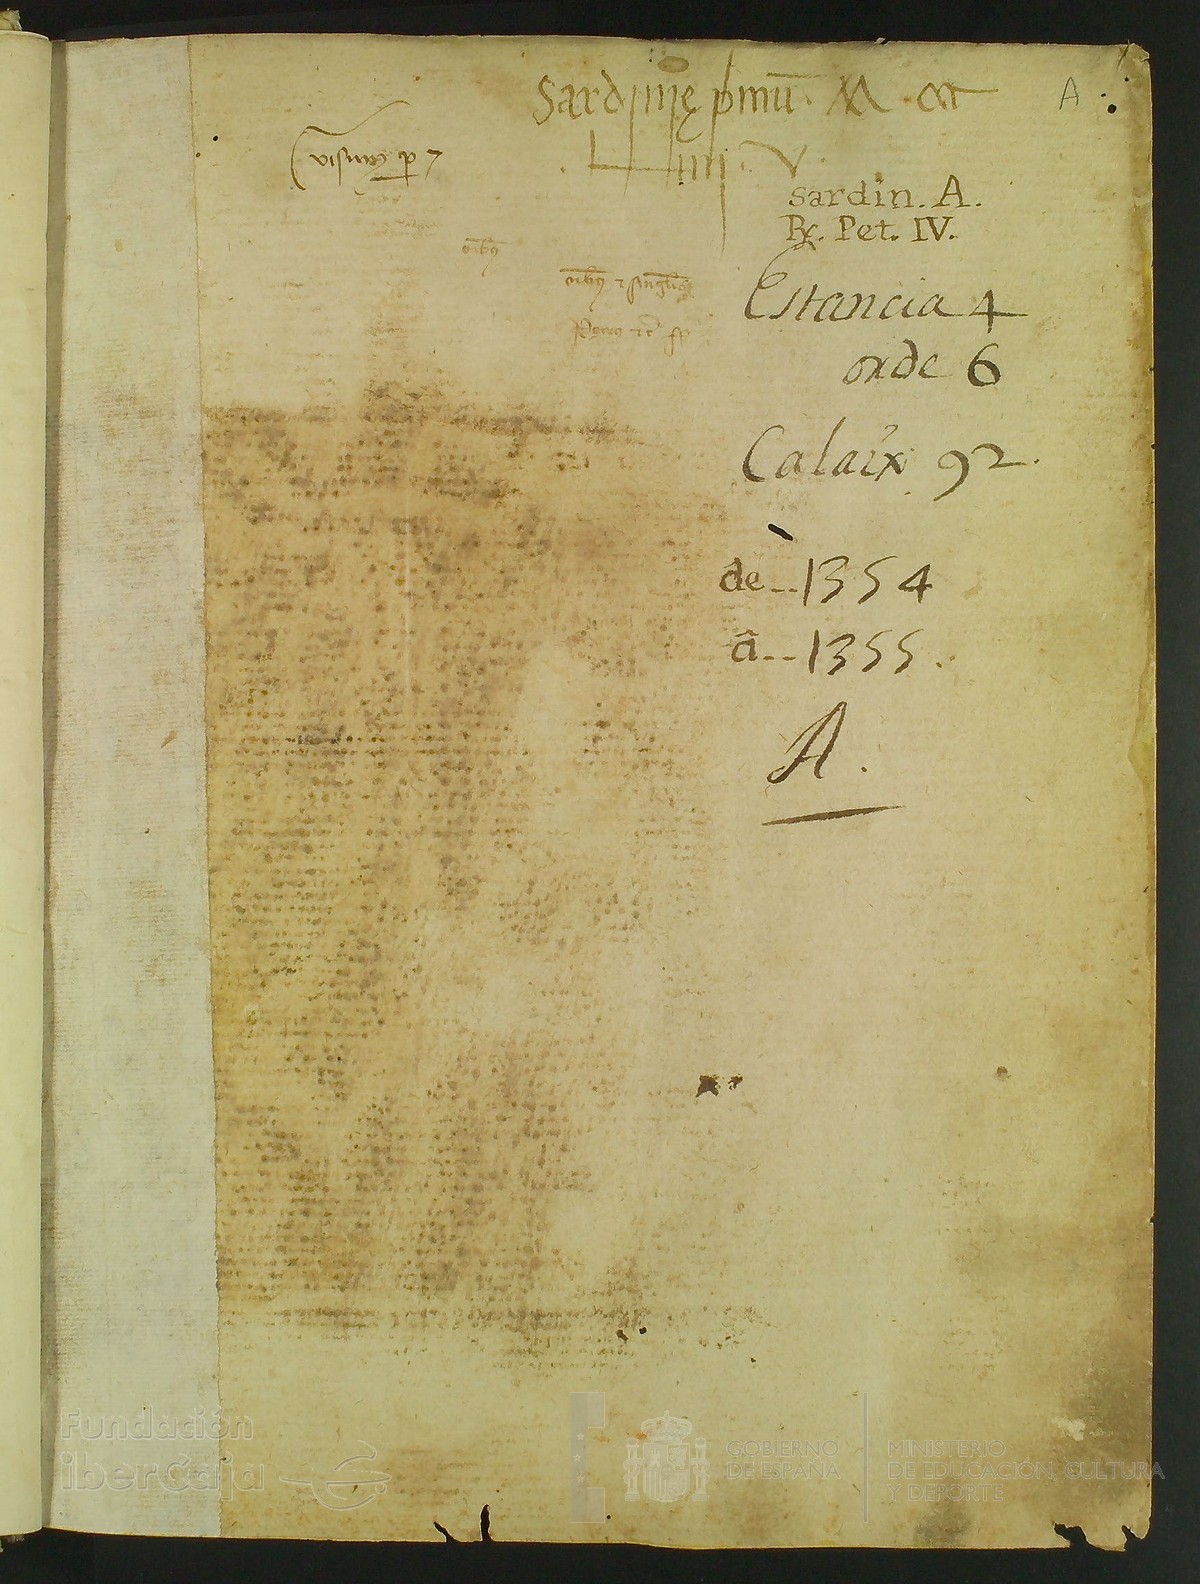 Sardinię pmū. M CCC
A
L iiii. V.
sardin. A.
Rx. Pet. IV.
oībȝ
oībȝ ⁊ singlis
Estancia 4
orde 6
Calaix 92.
de...1354
â...1355.
A.
Fundación
iberCaja
GOBIERNO
DE ESPAÑA
MINISTERIO
DE EDUCACIÓN, CULTURA
Y DEPORTE